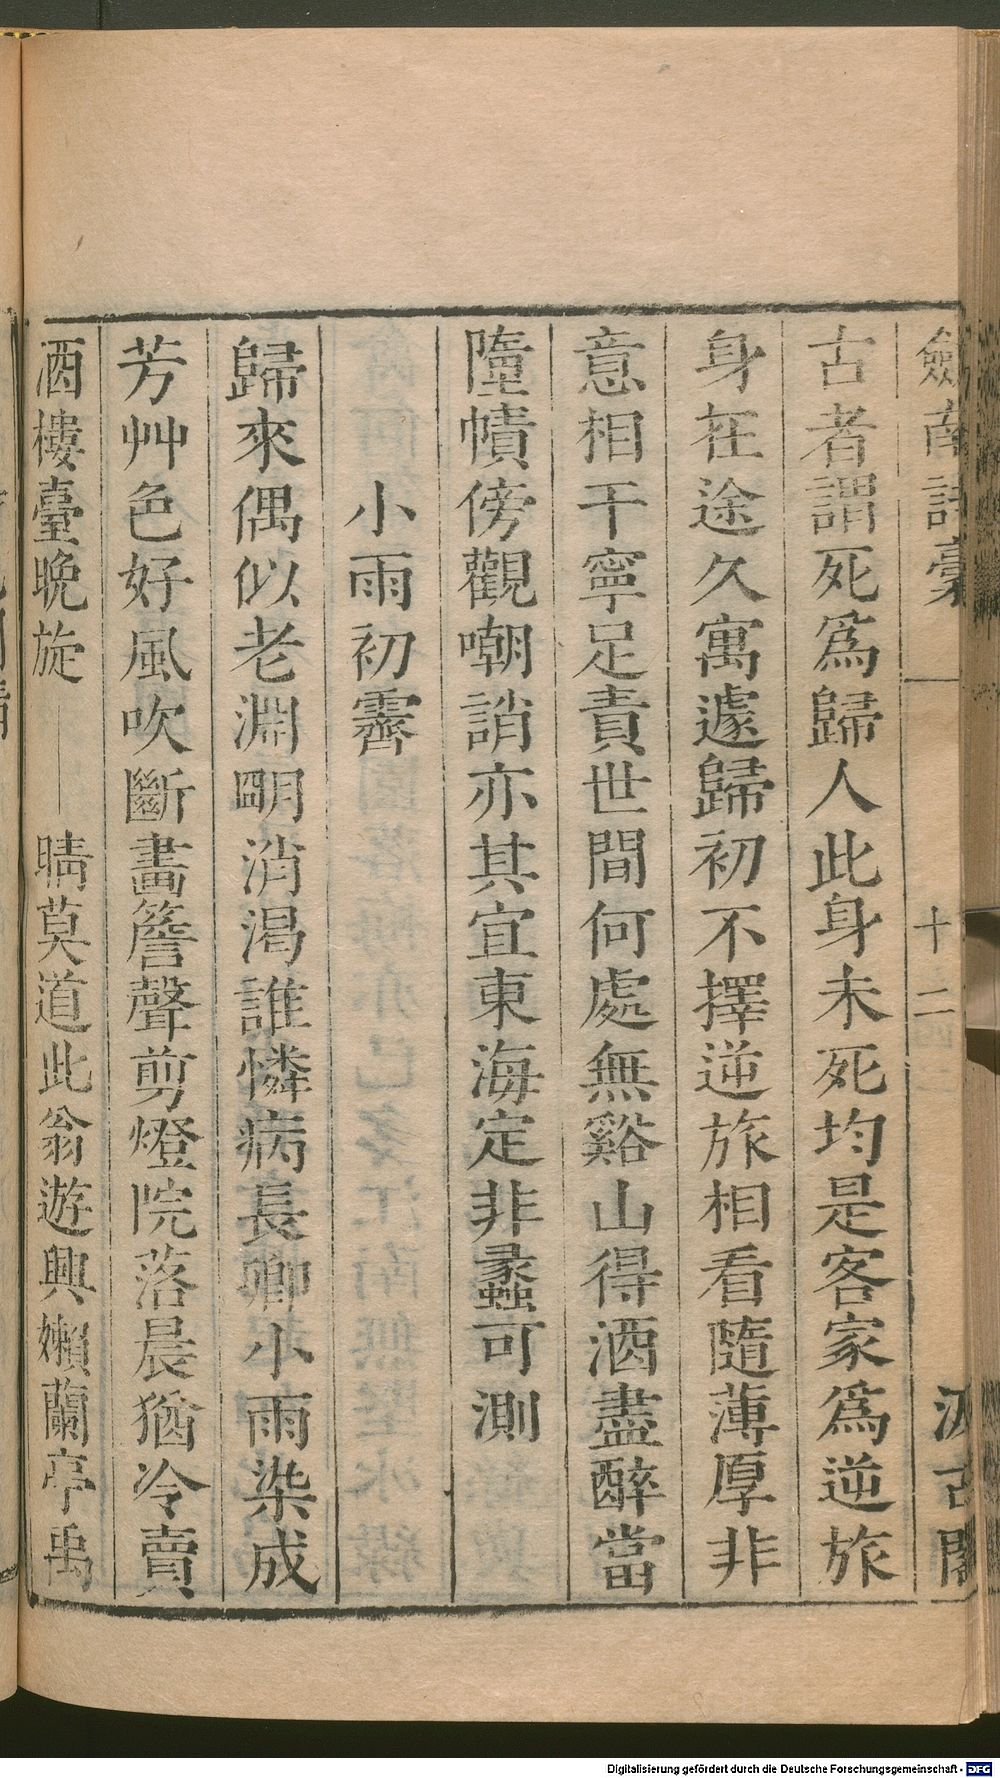 劍南詩藳
十二
汲古閣
古者謂死爲歸人此身未死均是客家爲逆旅
身在途久寓遽歸初不擇逆旅相看隨薄厚非
意相干寧足責世間何處無谿山得酒盡醉當
墮幘傍觀嘲誚亦其宜東海定非蠡可測
小雨初霽
歸來偶似老淵明消渴誰憐病長卿小雨染成
芳艸色好風吹斷畵簷聲剪燈院落晨猶冷賣
酒樓臺晚旋晴莫道此翁遊興嬾蘭亭禹
Digitalisierung gefördert durch die Deutsche Forschungsgemeinschaft - DFG